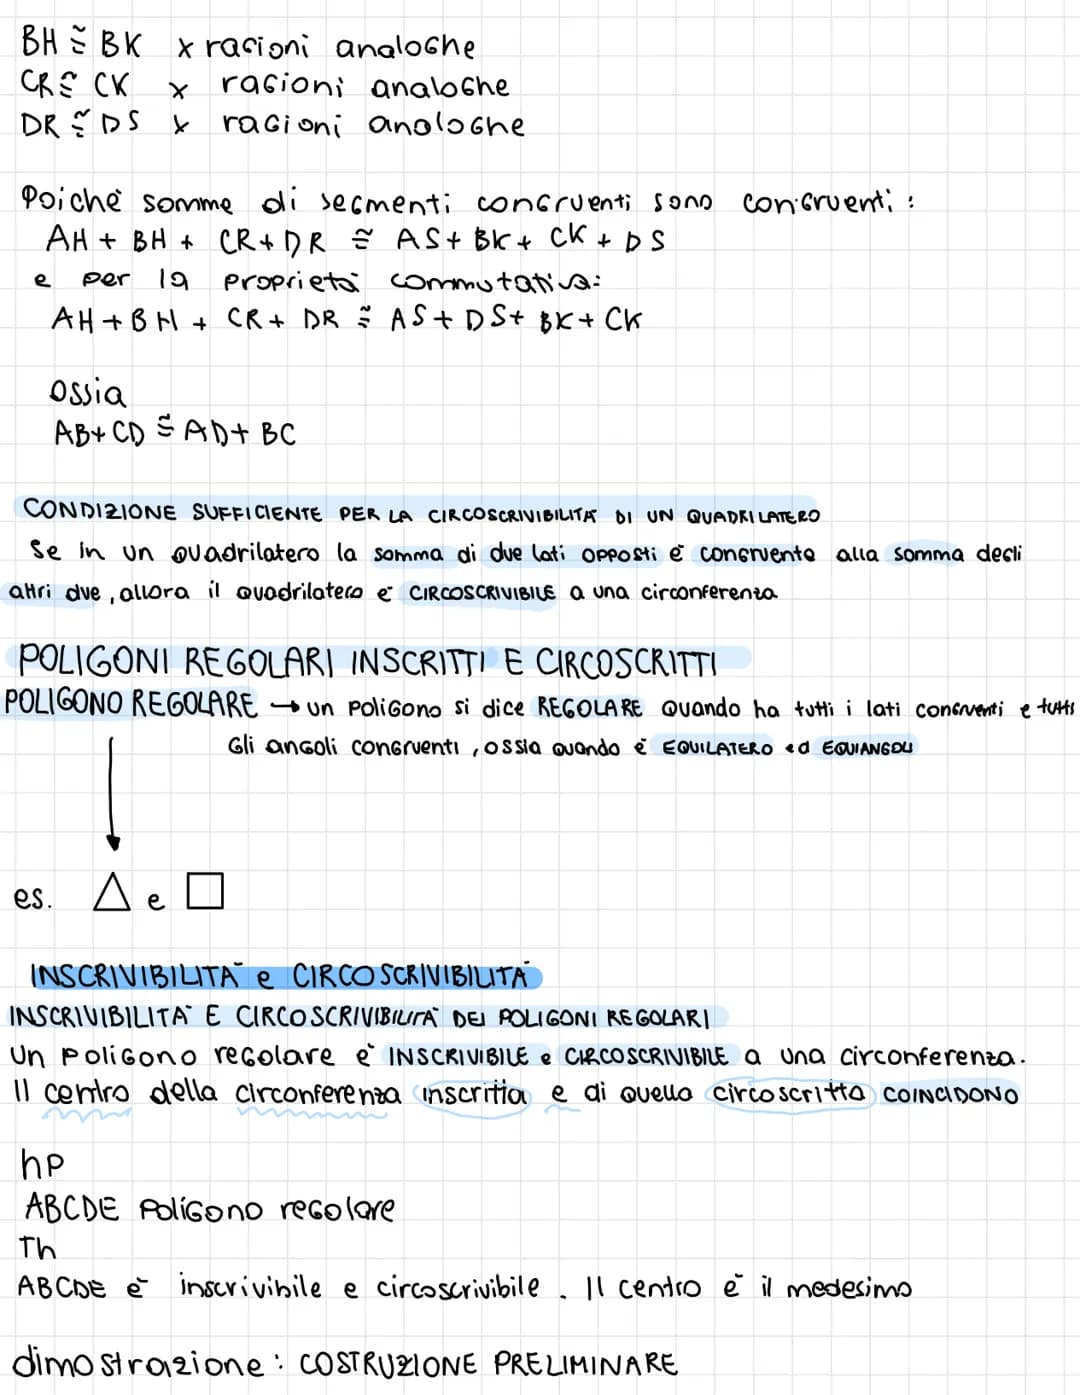 BH ≅ BK x ragioni analoghe
CR ≅ CK x ragioni analoghe
DR ≅ DS x ragioni analoghe
Poichè somme di segmenti congruenti sono congruenti :
AH + BH + CR + DR ≅ AS + BK + CK + DS
e per la proprietà commutativa:
AH + BH + CR + DR ≅ AS + DS + BK + CK
ossia
AB + CD ≅ AD + BC
CONDIZIONE SUFFICIENTE PER LA CIRCOSCRIVIBILITÀ DI UN QUADRILATERO
Se in un quadrilatero la somma di due lati opposti è congruente alla somma degli
altri due, allora il quadrilatero è CIRCOSCRIVIBILE a una circonferenza
POLIGONI REGOLARI INSCRITTI E CIRCOSCRITTI
POLIGONO REGOLARE → un poligono si dice REGOLARE quando ha tutti i lati congruenti e tutti
gli angoli congruenti, ossia quando è EQUILATERO ed EQUIANGOLI
es. △ e □
INSCRIVIBILITÀ e CIRCOSCRIVIBILITÀ
INSCRIVIBILITÀ E CIRCOSCRIVIBILITÀ DEI POLIGONI REGOLARI
Un poligono regolare è INSCRIVIBILE e CIRCOSCRIVIBILE a una circonferenza.
Il centro della circonferenza inscritta e di quella circoscritta COINCIDONO
hp
ABCDE poligono regolare
Th
ABCDE è inscrivibile e circoscrivibile. Il centro è il medesimo
dimostrazione : COSTRUZIONE PRELIMINARE